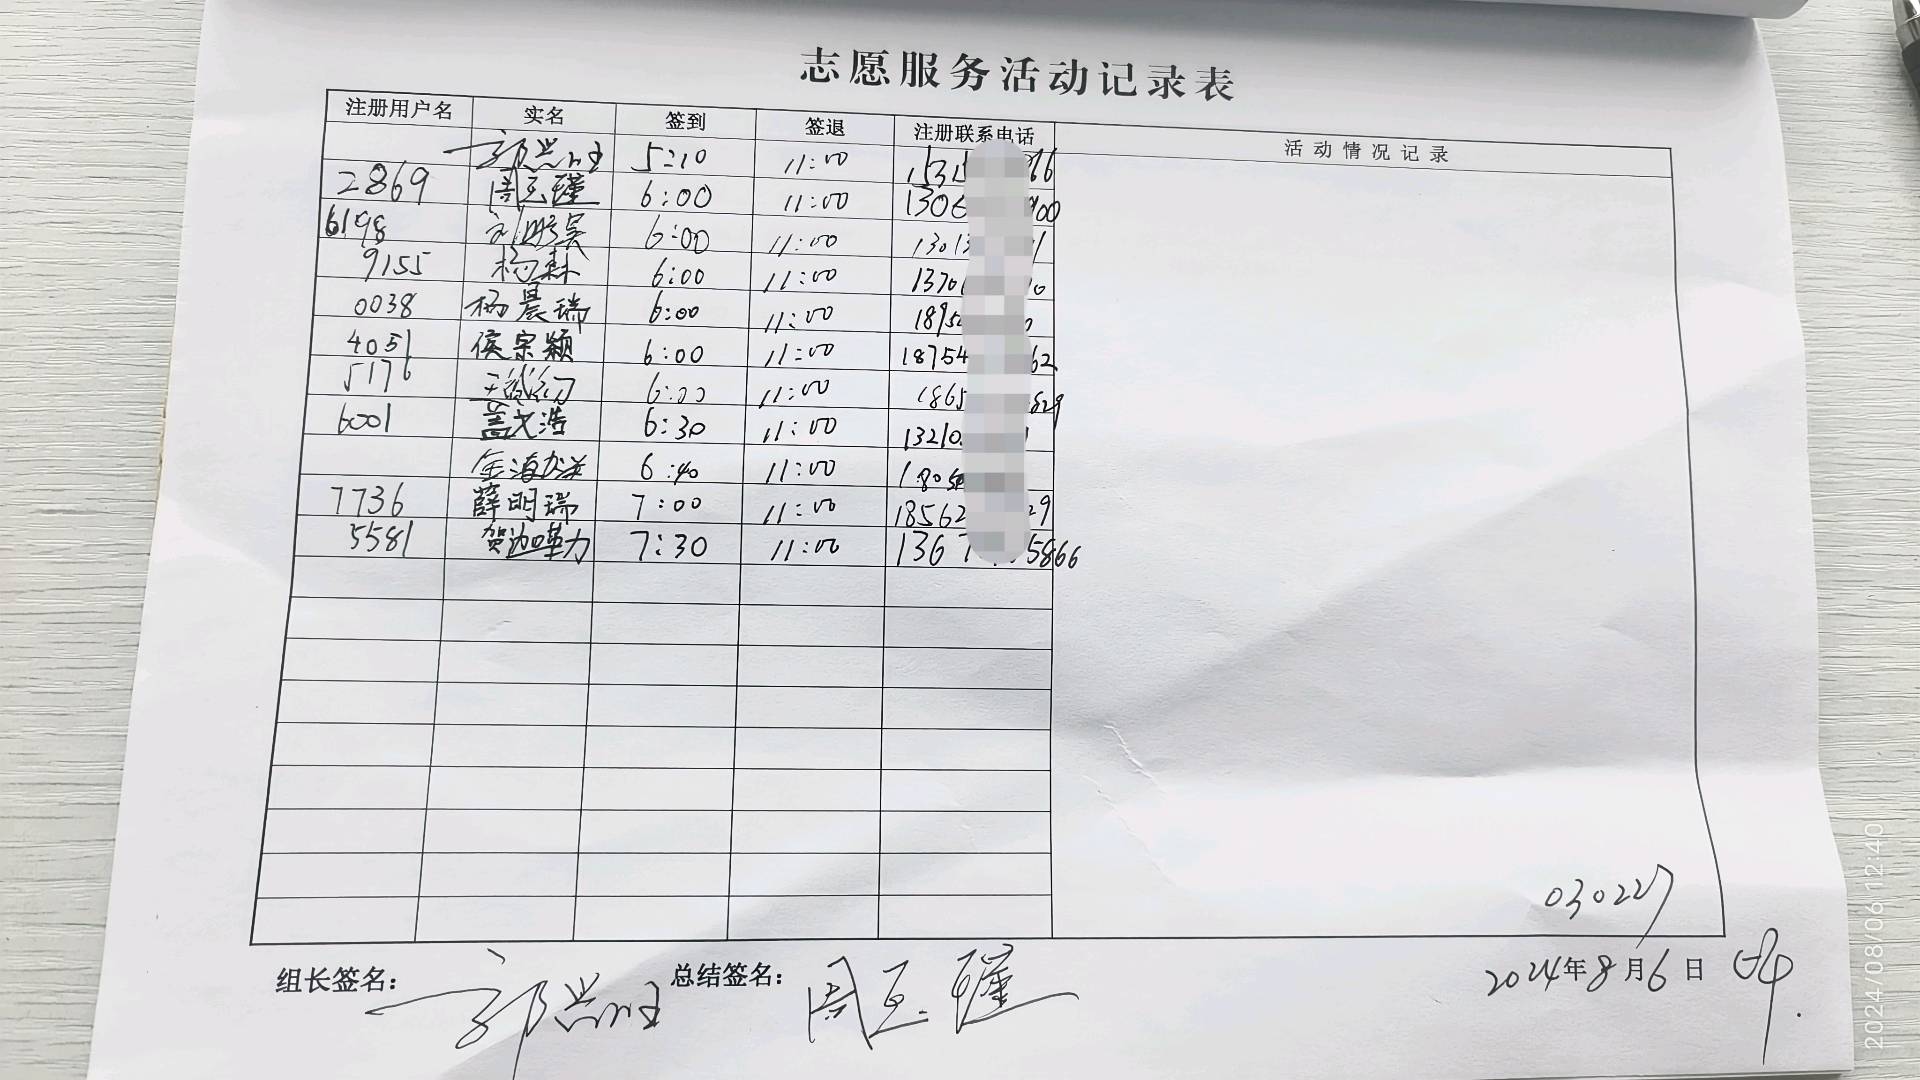 志愿服务活动记录表
注册用户名 实名 签到 签退 注册联系电话 活动情况记录
5:10 11:00 66
2869 周玉瑾 6:00 11:00 1306 900
6198 刘鹏昊 6:00 11:00 1301
9155 杨森 6:00 11:00 1370
0038 杨晨瑞 6:00 11:00 895
4051 侯宗颖 6:00 11:00 18754 62
5176 6:00 11:00 1865 829
6001 盖文浩 6:30 11:00 13210 1
6:40 11:00 1805
7736 薛明瑞 7:00 11:00 18562 29
5581 贺迦 力 7:30 11:00 136 5866
030227
组长签名： 总结签名： 周玉瑾 2024年8月6日
2024/08/06 12:40